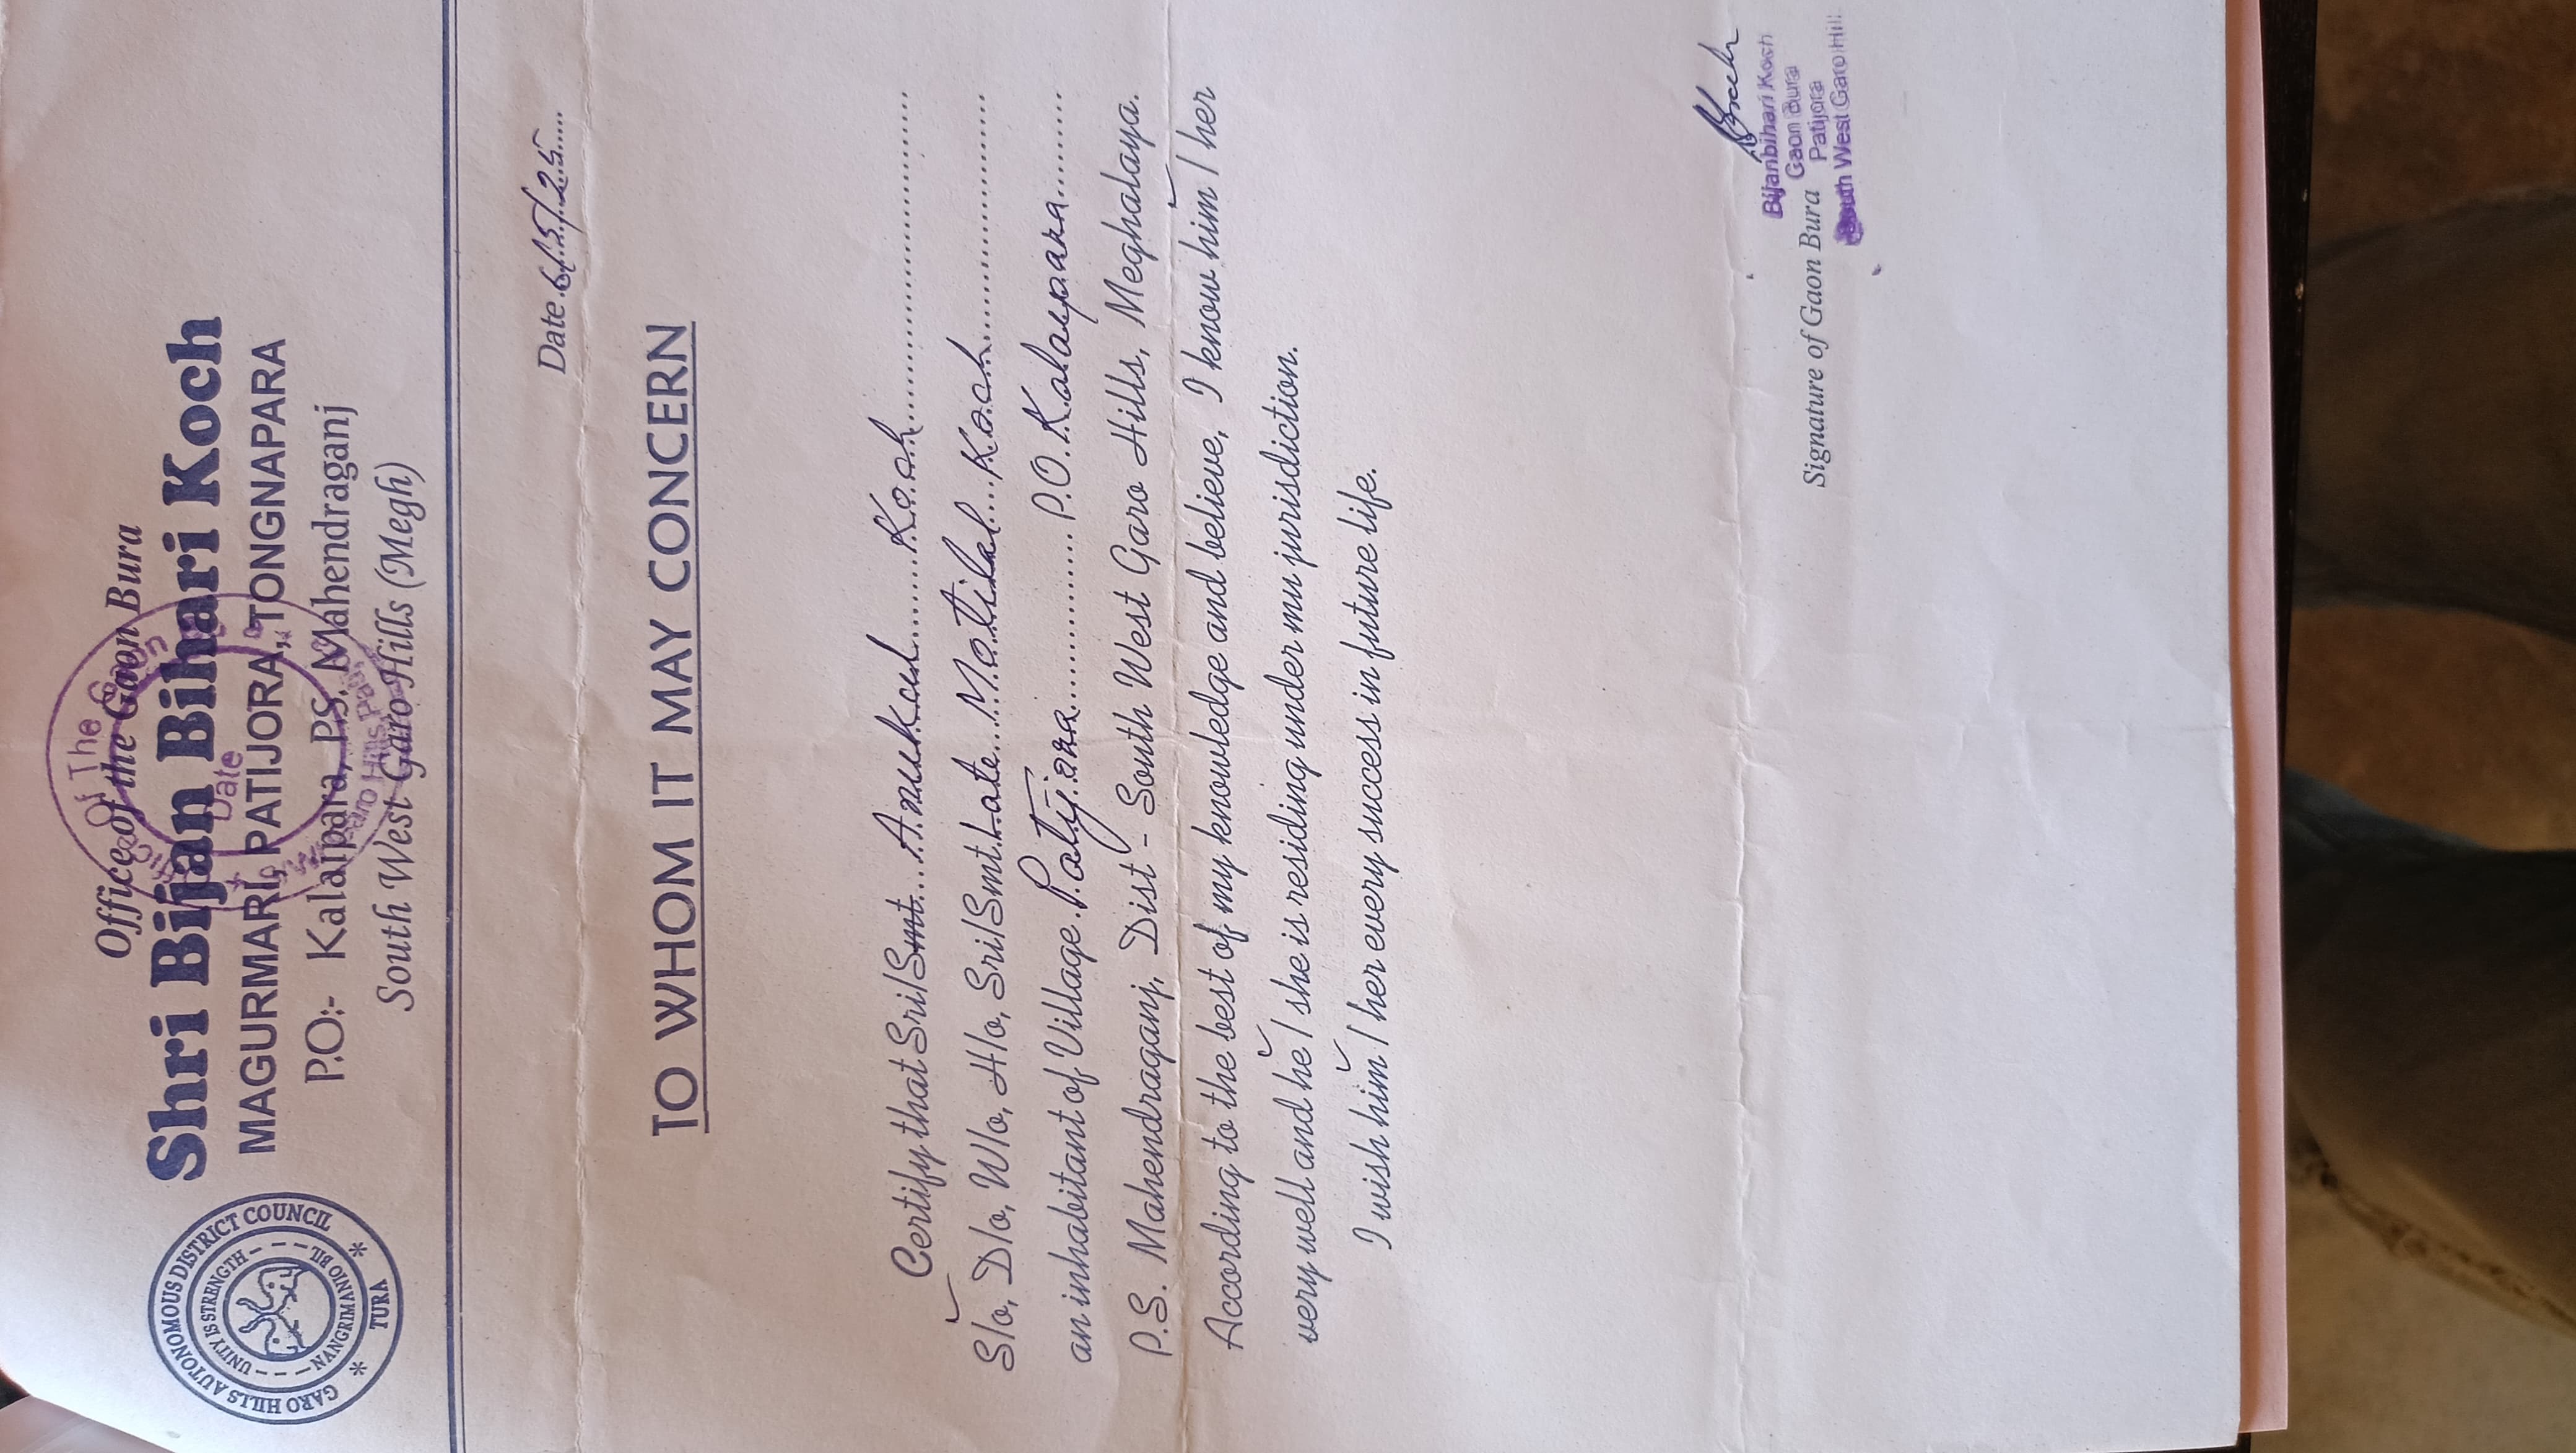 GARO HILLS AUTONOMOUS DISTRICT COUNCIL
UNITY IS STRENGTH
NANGRIMANI NINO BIL
TURA
Office of the Gaon Bura
Shri Bijan Bihari Koch
MAGURMARI, PATIJORA, TONGNAPARA
P.O:- Kalaipara, P.S. Mahendraganj
South West Garo Hills (Megh)
Of The Gaon
Date
Date 6/5/25
TO WHOM IT MAY CONCERN
Certify that Sri/Smt. Anukul Koch
S/o, D/o, W/o, H/o, Sri/Smt. Late Matilal Koch
an inhabitant of Village Patijora P.O. Kalaipara
P.S. Mahendraganj, Dist - South West Garo Hills, Meghalaya.
According to the best of my knowledge and believe, I know him / her
very well and he / she is residing under mu jurisdiction.
I wish him / her every success in future life.
Bijanbihari Koch
Gaon Bura
Patijora
South West Garo Hills
Signature of Gaon Bura